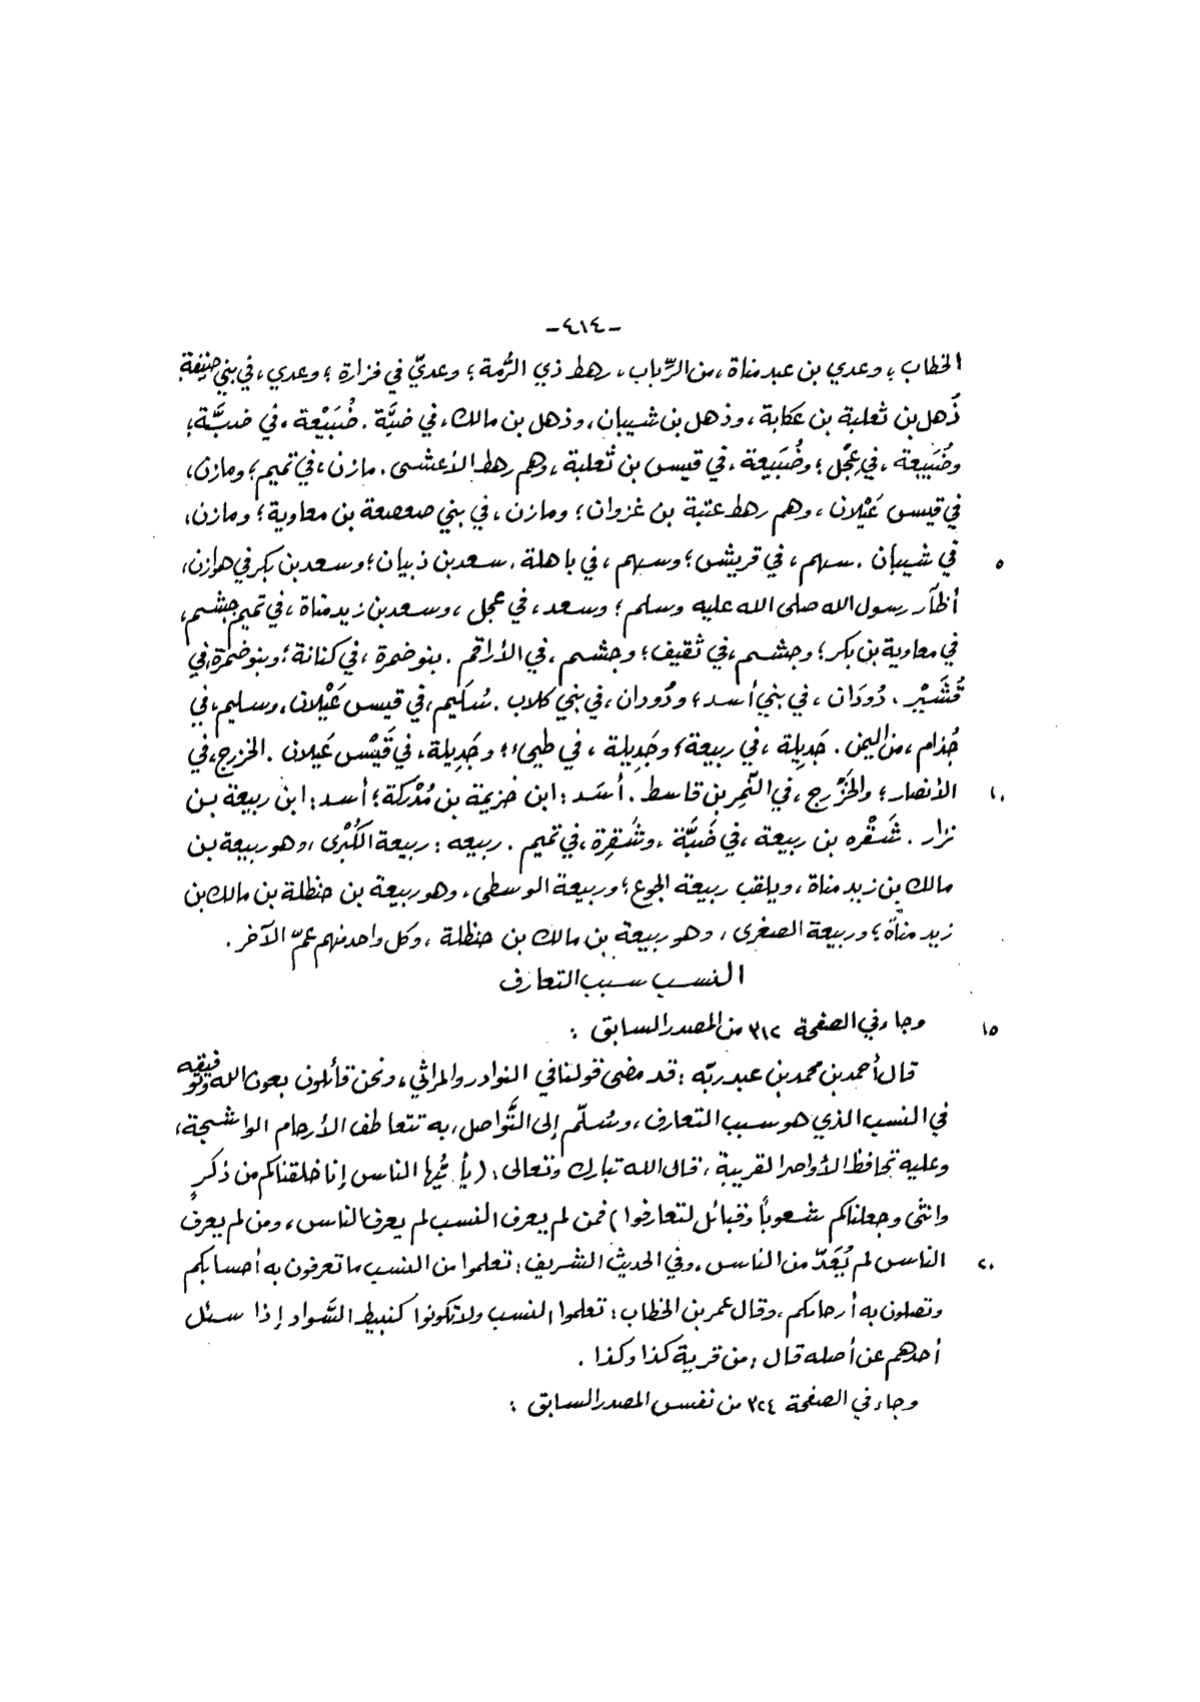 -٤١٤-
الخطاب؛ وعدي بن عبد مناة، من الرِّباب، رهط ذي الرُّمة؛ وعديّ في فزارة؛ وعدي، في بني حنيفة.
ذُهل بن ثعلبة بن عكابة، وذهل بن شيبان، وذهل بن مالك، في ضبَّة. ضُبَيْعة، في ضبَّة؛
وضُبَيعة، في عِجْل؛ وضُبَيعة، في قيس بن ثعلبة، وهم رهط الأعشى. مازن، في تميم؛ ومازن،
في قيس عَيْلان، وهم رهط عتبة بن غزوان؛ ومازن، في بني صعصعة بن معاوية؛ ومازن،
٥ في شيبان. سهم، في قريش؛ وسهم، في باهلة. سعد بن ذبيان؛ وسعد بن بكر في هوازن،
أظآر رسول الله صلى الله عليه وسلم؛ وسعد، في عجل، وسعد بن زيد مناة، في تميم. جشم،
في معاوية بن بكر؛ وجشم، في ثقيف؛ وجشم، في الأراقم. بنو ضمرة، في كنانة؛ وبنو ضمرة، في
قُشَيْر. دُودَان، في بني أسد؛ ودُودان، في بني كلاب. سُليم، في قيس عَيْلان، وسليم، في
جُذام، من اليمن. جَدِيلة، في ربيعة؛ وجَدِيلة، في طيء؛ وجَدِيلة، في قَيْس عَيلان. الخزرج، في
١٠ الأنصار؛ والخَزْرج، في النَّمِر بن قاسط. أسَد: ابن خزيمة بن مُدْركة؛ أسد: ابن ربيعة بن
نزار. شَقْره بن ربيعة، في ضَبَّة، وشَقِرة، في تميم. ربيعه: ربيعة الكُبْرى، وهو ربيعة بن
مالك بن زيد مناة، ويلقب ربيعة الجوع؛ وربيعة الوسطى، وهو ربيعة بن حنظلة بن مالك بن
زيد مناة؛ وربيعة الصغرى، وهو ربيعة بن مالك بن حنظلة، وكل واحد منهم عمّ الآخر.
النسب سبب التعارف
١٥ وجاء في الصفحة ٣١٢ من المصدر السابق:
قال أحمد بن محمد بن عبد ربّه: قد مضى قولنا في النوادر والمراثي، ونحن قائلون بعون الله وتوفيقه
في النسب الذي هو سبب التعارف، وسُلّم إلى التَّواصل، به تتعاطف الأرحام الواشجة،
وعليه تحافظ الأواصر القريبة، قال الله تبارك وتعالى: (يأيُّها الناس إنا خلقناكم من ذكرٍ
وانثى وجعلناكم شعوباً وقبائل لتعارفوا) فمن لم يعرف النسب لم يعرف الناس، ومن لم يعرف
٢٠ الناس لم يُعَدّ من الناس، وفي الحديث الشريف: تعلموا من النسب ما تعرفون به أحسابكم
وتصلون به أرحامكم، وقال عمر بن الخطاب: تعلموا النسب ولا تكونوا كنبيط السَّواد إذا سئل
أحدهم عن أصله قال: من قرية كذا وكذا.
وجاء في الصفحة ٣٢٤ من نفس المصدر السابق: